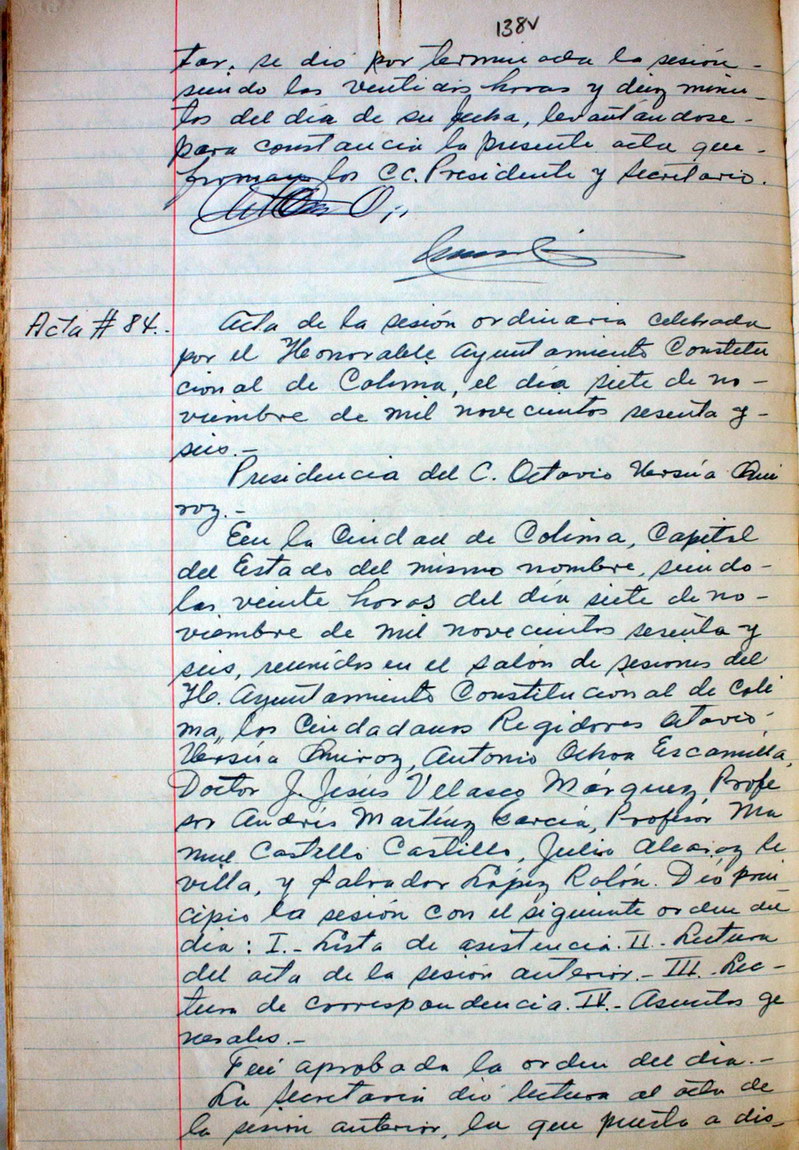 138v
tar, se dió por terminada la sesión-
siendo las ventidos horas y diez minu-
tos del día de su fecha, levantándose-
para constancia la presente acta que-
firman los CC. Presidente y Secretario.
Acta # 84.-
Acta de la sesión ordinaria celebrada
por el Honorable Ayuntamiento Constitu
cional de Colima, el día siete de no-
viembre de mil novecientos sesenta y-
seis.-
Presidencia del C. Octavio Ursúa Qui
roz.-
Een la Ciudad de Colima, Capital
del Estado del mismo nombre, siendo-
las veinte horas del día siete de no-
viembre de mil novecientos sesenta y
seis, reunidos en el salón de sesiones del
H. Ayuntamiento Constitucional de Coli
ma, los Ciudadanos Regidores Octavio
Ursúa Quiroz, Antonio Ochoa Escamilla,
Doctor J. Jesús Velasco Márquez, Profe
sor Andrés Martínez García, Profesor Ma
nuel Castello Castillo, Julio Alcaraz Se
villa, y Salvador López Rolón. Dió prin
cipio la sesión con el siguiente orden del
día: I.- Lista de asistencia. II.- Lectura
del acta de la sesión anterior.- III.- Lec-
tura de correspondencia. IV.- Asuntos ge
nerales.-
Fué aprobada la orden del día.-
La Secretaría dió lectura al acta de
la sesión anterior, la que puesta a dis-